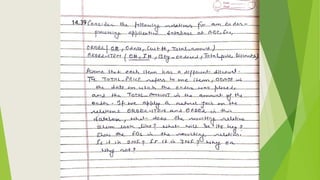 14.39 Consider the following relations for an order-
processing application database at ABC, Inc.
ORDER (O#, Odate, Cust#, Total_amount)
ORDER-ITEM (O#, I#, Qty_ordered, Total_price, Discount%)
Assume that each item has a different discount.
The TOTAL_PRICE refers to one item, ODATE is
the date on which the order was placed,
and the TOTAL_AMOUNT is the amount of the
order. If we apply a natural join on the
relations ORDER-ITEM and ORDER in this
database, what does the resulting relation
schema look like? What will be its key?
Show the FDs in this resulting relation.
Is it in 2NF? Is it in 3NF? Why or
Why not?